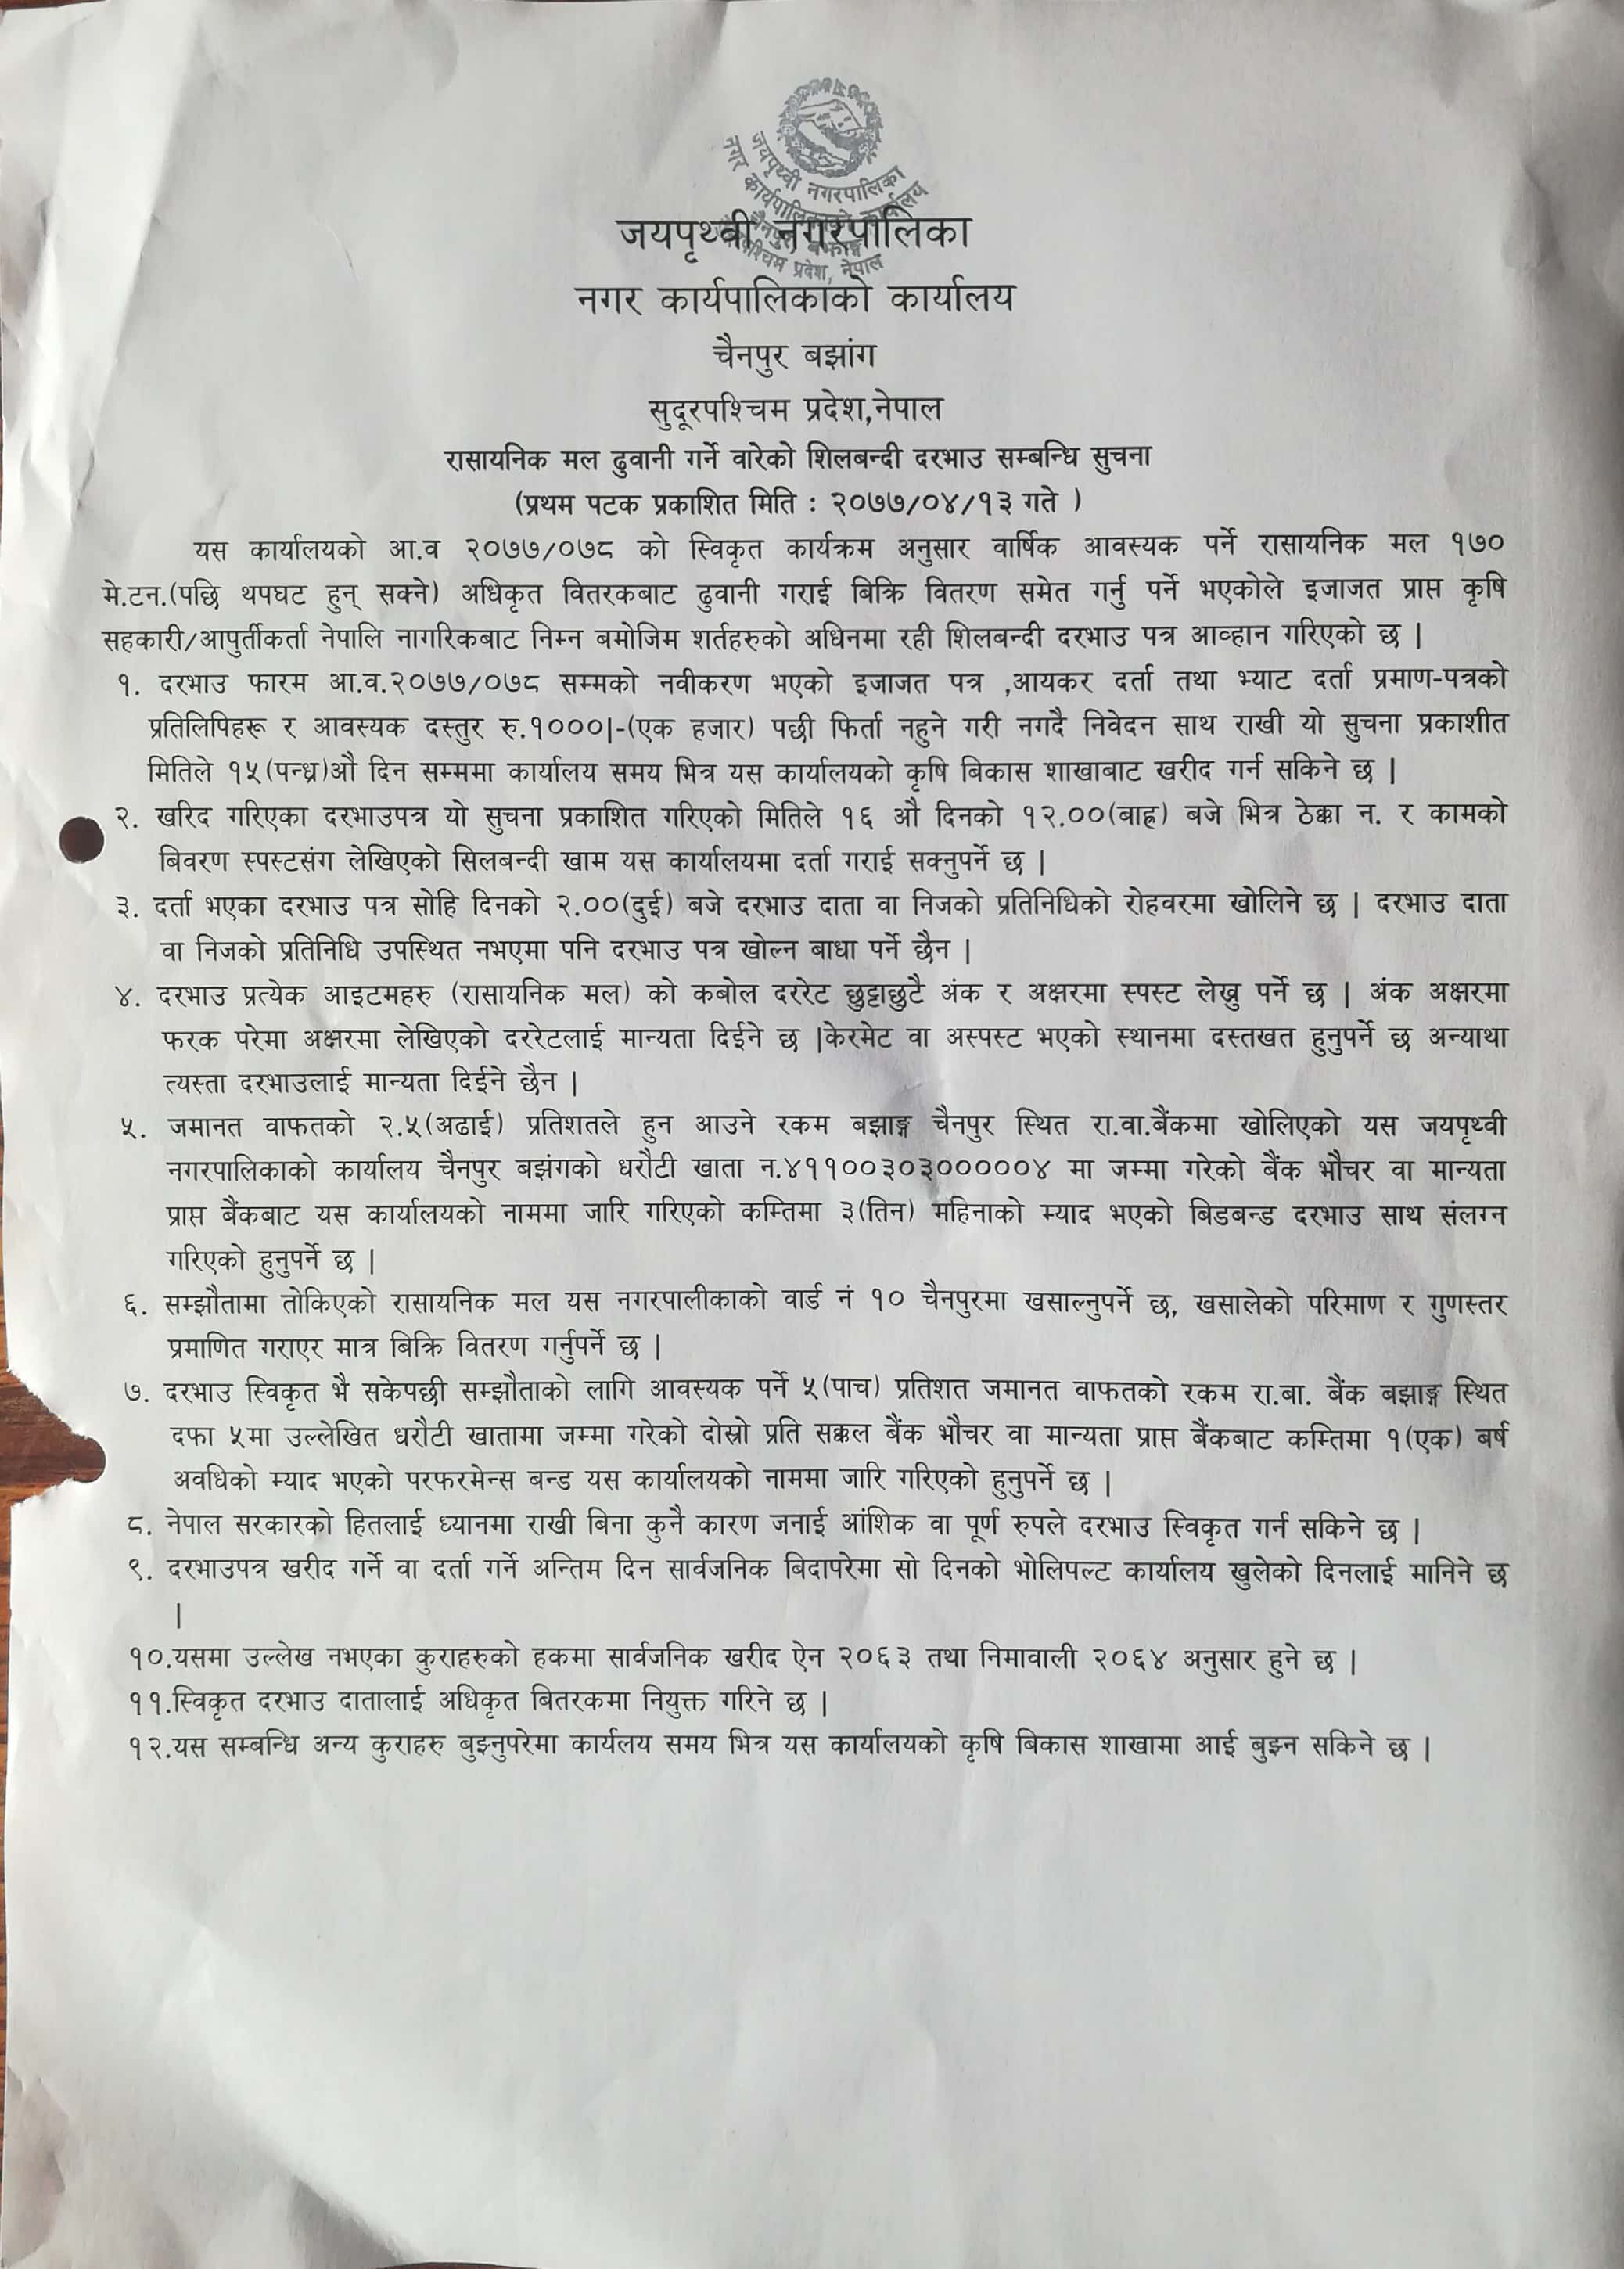 जयपृथ्वी नगरपालिका
नगर कार्यपालिकाको कार्यालय
चैनपुर, बझाङ्ग
पश्चिम प्रदेश, नेपाल
जयपृथ्वी नगरपालिका
नगर कार्यपालिकाको कार्यालय
चैनपुर बझांग
सुदूरपश्चिम प्रदेश,नेपाल
रासायनिक मल ढुवानी गर्ने वारेको शिलबन्दी दरभाउ सम्बन्धि सुचना
(प्रथम पटक प्रकाशित मिति : २०७७/०४/१३ गते )
यस कार्यालयको आ.व २०७७/०७८ को स्विकृत कार्यक्रम अनुसार वार्षिक आवस्यक पर्ने रासायनिक मल १७०
मे.टन.(पछि थपघट हुन् सक्ने) अधिकृत वितरकबाट ढुवानी गराई बिक्रि वितरण समेत गर्नु पर्ने भएकोले इजाजत प्राप्त कृषि
सहकारी/आपुर्तीकर्ता नेपालि नागरिकबाट निम्न बमोजिम शर्तहरुको अधिनमा रही शिलबन्दी दरभाउ पत्र आव्हान गरिएको छ |
१. दरभाउ फारम आ.व.२०७७/०७८ सम्मको नवीकरण भएको इजाजत पत्र ,आयकर दर्ता तथा भ्याट दर्ता प्रमाण-पत्रको
प्रतिलिपिहरू र आवस्यक दस्तुर रु.१०००|-(एक हजार) पछी फिर्ता नहुने गरी नगदै निवेदन साथ राखी यो सुचना प्रकाशीत
मितिले १५(पन्ध्र)औ दिन सम्ममा कार्यालय समय भित्र यस कार्यालयको कृषि बिकास शाखाबाट खरीद गर्न सकिने छ |
२. खरिद गरिएका दरभाउपत्र यो सुचना प्रकाशित गरिएको मितिले १६ औ दिनको १२.००(बाह्र) बजे भित्र ठेक्का न. र कामको
बिवरण स्पस्टसंग लेखिएको सिलबन्दी खाम यस कार्यालयमा दर्ता गराई सक्नुपर्ने छ |
३. दर्ता भएका दरभाउ पत्र सोहि दिनको २.००(दुई) बजे दरभाउ दाता वा निजको प्रतिनिधिको रोहवरमा खोलिने छ | दरभाउ दाता
वा निजको प्रतिनिधि उपस्थित नभएमा पनि दरभाउ पत्र खोल्न बाधा पर्ने छैन |
४. दरभाउ प्रत्येक आइटमहरु (रासायनिक मल) को कबोल दररेट छुट्टाछुटै अंक र अक्षरमा स्पस्ट लेख्नु पर्ने छ | अंक अक्षरमा
फरक परेमा अक्षरमा लेखिएको दररेटलाई मान्यता दिईने छ |केरमेट वा अस्पस्ट भएको स्थानमा दस्तखत हुनुपर्ने छ अन्याथा
त्यस्ता दरभाउलाई मान्यता दिईने छैन |
५. जमानत वाफतको २.५(अढाई) प्रतिशतले हुन आउने रकम बझाङ्ग चैनपुर स्थित रा.वा.बैंकमा खोलिएको यस जयपृथ्वी
नगरपालिकाको कार्यालय चैनपुर बझंगको धरौटी खाता न.४११००३०३०००००४ मा जम्मा गरेको बैंक भौचर वा मान्यता
प्राप्त बैंकबाट यस कार्यालयको नाममा जारि गरिएको कम्तिमा ३(तिन) महिनाको म्याद भएको बिडबन्ड दरभाउ साथ संलग्न
गरिएको हुनुपर्ने छ |
६. सम्झौतामा तोकिएको रासायनिक मल यस नगरपालीकाको वार्ड नं १० चैनपुरमा खसाल्नुपर्ने छ, खसालेको परिमाण र गुणस्तर
प्रमाणित गराएर मात्र बिक्रि वितरण गर्नुपर्ने छ |
७. दरभाउ स्विकृत भै सकेपछी सम्झौताको लागि आवस्यक पर्ने ५(पाच) प्रतिशत जमानत वाफतको रकम रा.बा. बैंक बझाङ्ग स्थित
दफा ५मा उल्लेखित धरौटी खातामा जम्मा गरेको दोस्रो प्रति सक्कल बैंक भौचर वा मान्यता प्राप्त बैंकबाट कम्तिमा १(एक) बर्ष
अवधिको म्याद भएको परफरमेन्स बन्ड यस कार्यालयको नाममा जारि गरिएको हुनुपर्ने छ |
८. नेपाल सरकारको हितलाई ध्यानमा राखी बिना कुनै कारण जनाई आंशिक वा पूर्ण रुपले दरभाउ स्विकृत गर्न सकिने छ |
९. दरभाउपत्र खरीद गर्ने वा दर्ता गर्ने अन्तिम दिन सार्वजनिक बिदापरेमा सो दिनको भोलिपल्ट कार्यालय खुलेको दिनलाई मानिने छ
|
१०.यसमा उल्लेख नभएका कुराहरुको हकमा सार्वजनिक खरीद ऐन २०६३ तथा निमावाली २०६४ अनुसार हुने छ |
११.स्विकृत दरभाउ दातालाई अधिकृत बितरकमा नियुक्त गरिने छ |
१२.यस सम्बन्धि अन्य कुराहरु बुझ्नुपरेमा कार्यलय समय भित्र यस कार्यालयको कृषि बिकास शाखामा आई बुझ्न सकिने छ |